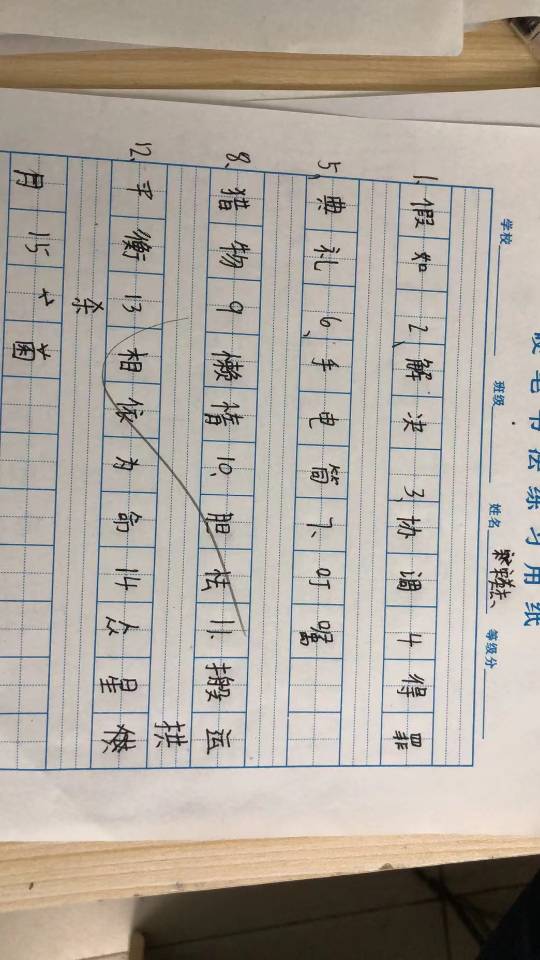 硬笔书法练习用纸
学校 班级 姓名 等级分
1、假如 2、解决 3、协调 4 得罪
5、典礼 6、手电筒 7、叮嘱
8、猎物 9 懒惰 10、胆怯 11、搬运
拱
12、平衡 13 相依为命 14 众星
杀
月 15 菌